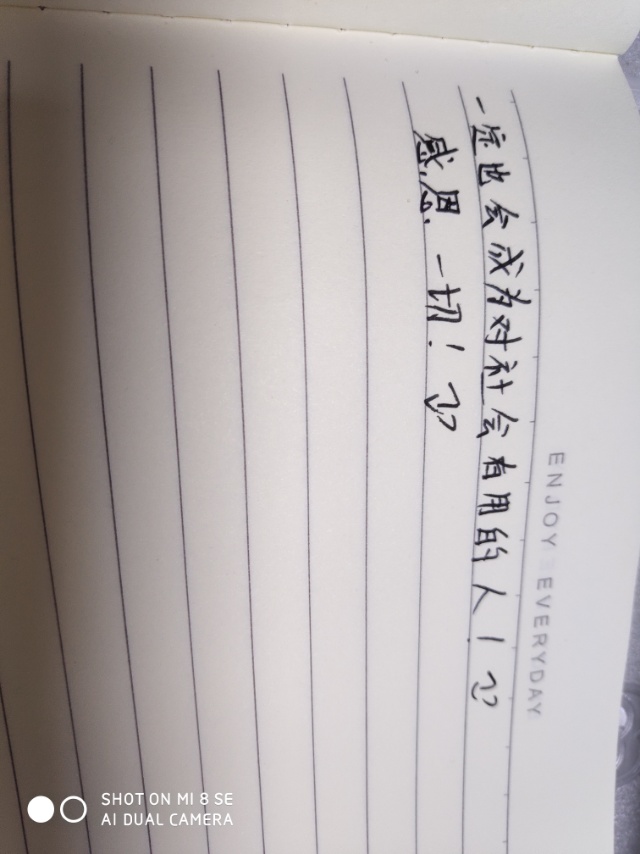 ENJOY EVERYDAY
一定也会成为对社会有用的人!
感恩一切!
SHOT ON MI 8 SE
AI DUAL CAMERA